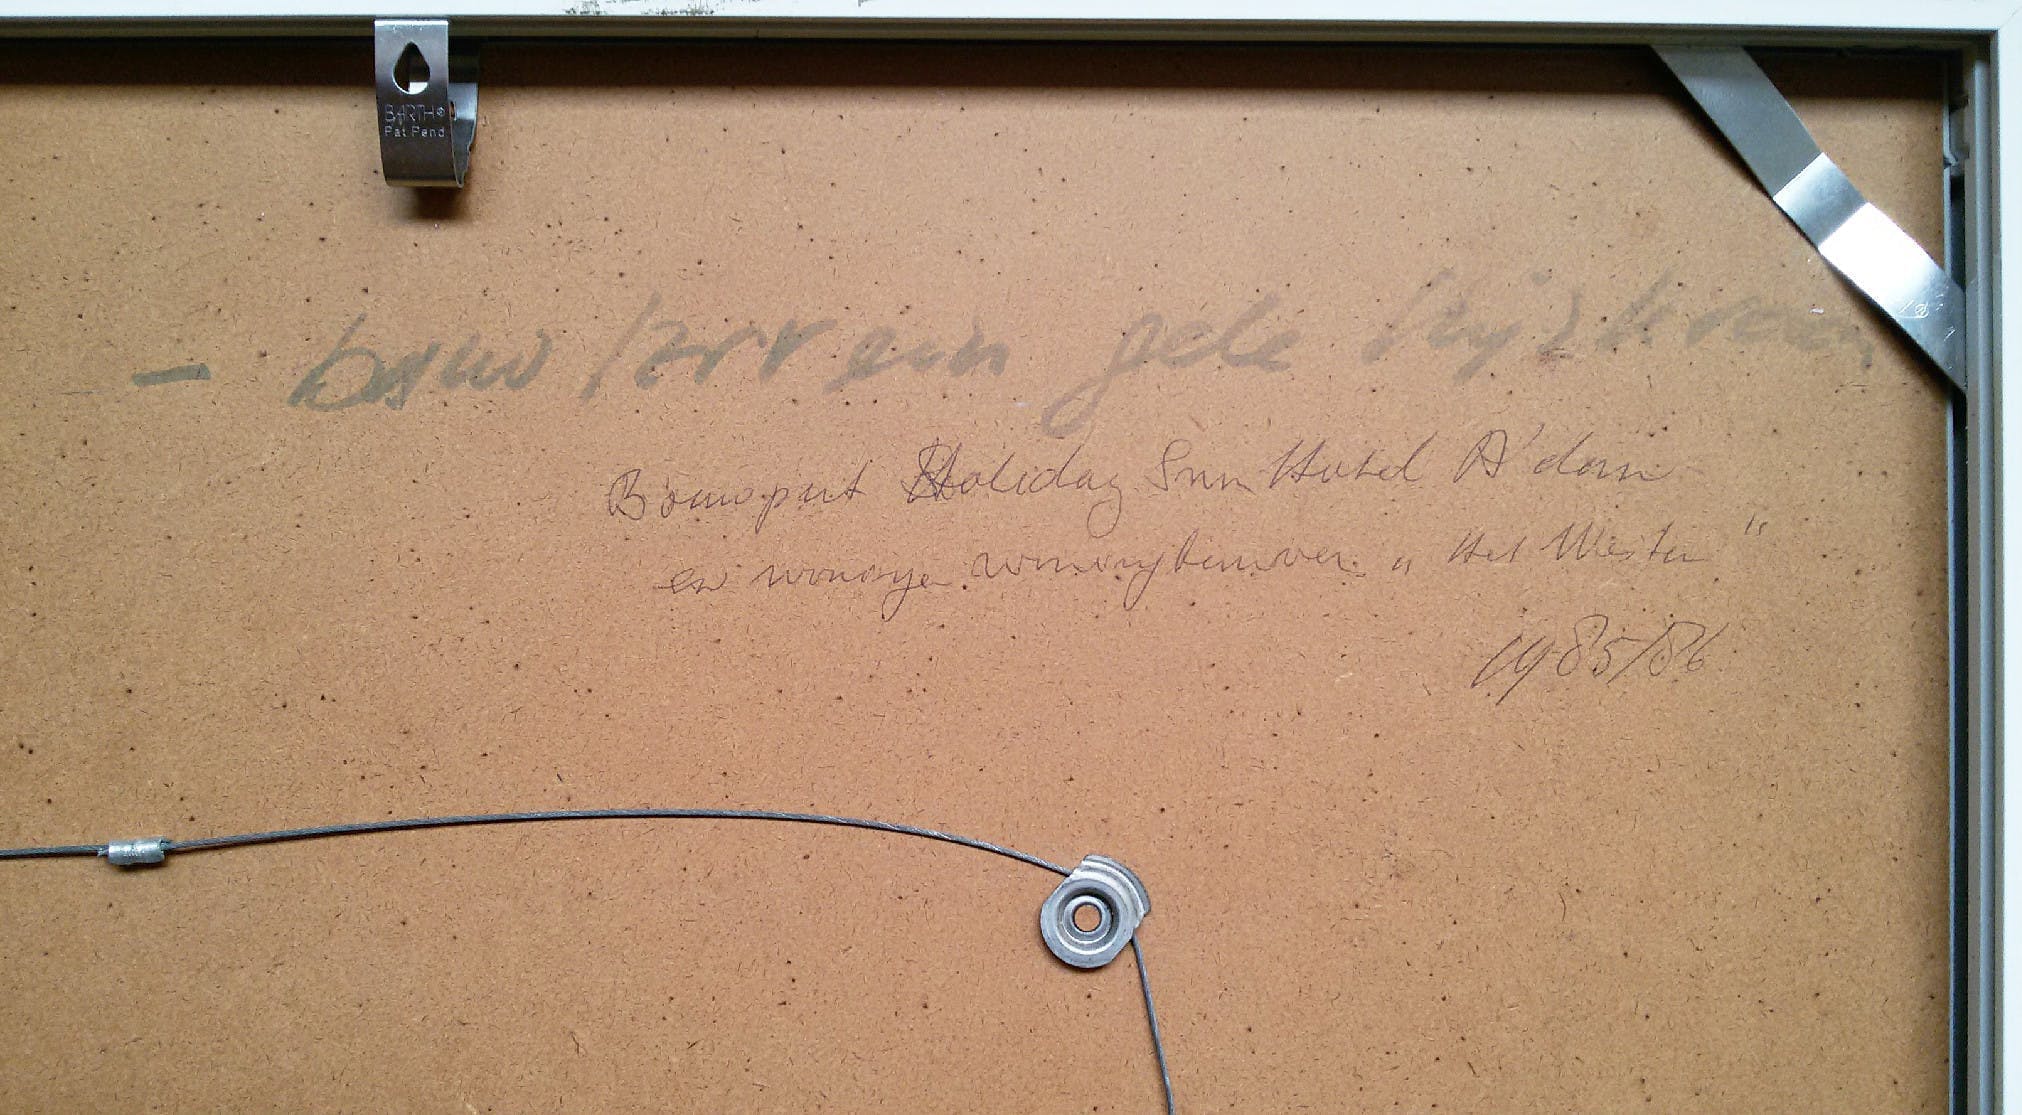 BARTH®
Pat Pend
- bouwterrein gele hijskraan
Bouwput Holiday Inn Hotel A'dam
en woningen woningbouwver. „Het Westen"
1985/86